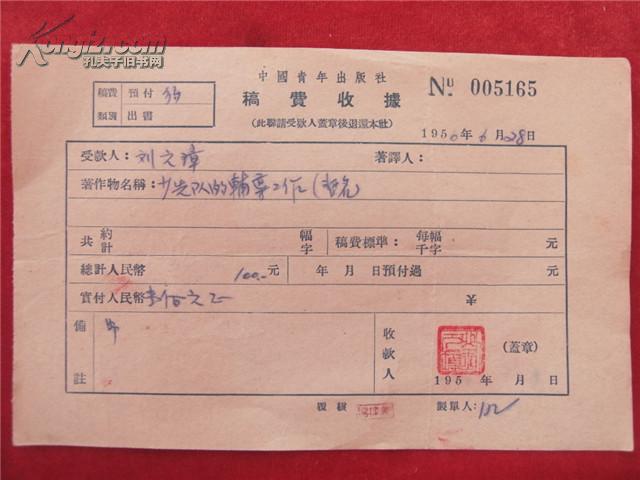 Kongfz.com
孔夫子旧书网
中國青年出版社
稿費收據
№ 005165
(此聯請受欵人蓋章後退還本社)
稿費 預付
類別 出書
195 年6月28日
受欵人：刘文璋 著譯人：
著作物名稱：少先队的輔导工作(暫名)
共約計 幅字 稿費標準：每幅千字 元
總計人民幣 100.- 元 年 月 日預付過 元
實付人民幣壹佰元正 ¥
備註
收款人 (蓋章)
195 年 月 日
覆核 製單人：